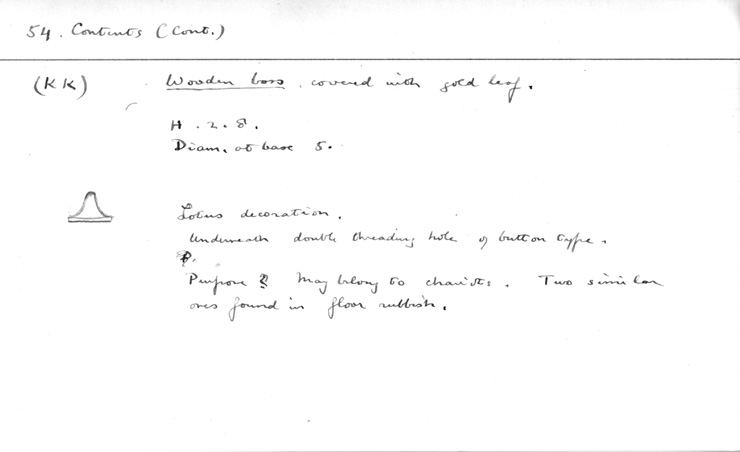 54. Contents (Cont.)
(KK) Wooden boss, covered with gold leaf.
H. 2.8.
Diam. at base 5.
Lotus decoration.
Underneath double threading hole of button type.
P.
Purpose? May belong to chariots. Two similar
ones found in floor rubbish.